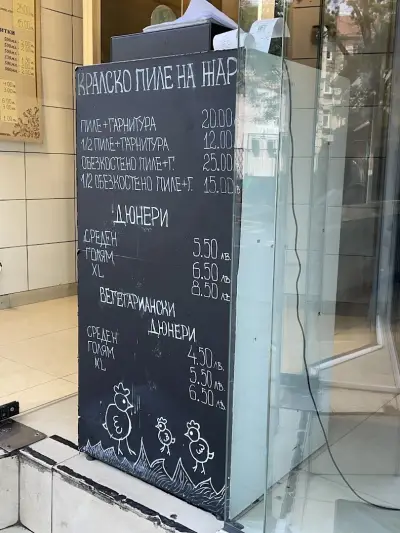 КРАЛСКО ПИЛЕ НА ЖАР
ПИЛЕ+ГАРНИТУРА 20.00
1/2 ПИЛЕ+ГАРНИТУРА 12.00
ОБЕЗКОСТЕНО ПИЛЕ+Г. 25.00
1/2 ОБЕЗКОСТЕНО ПИЛЕ+Г. 15.00
ДЮНЕРИ
СРЕДЕН 5.50 лв.
ГОЛЯМ 6.50 лв.
XL 8.50 лв.
ВЕГЕТАРИАНСКИ
ДЮНЕРИ
СРЕДЕН 4.50 лв.
ГОЛЯМ 5.50 лв.
XL 6.50 лв.